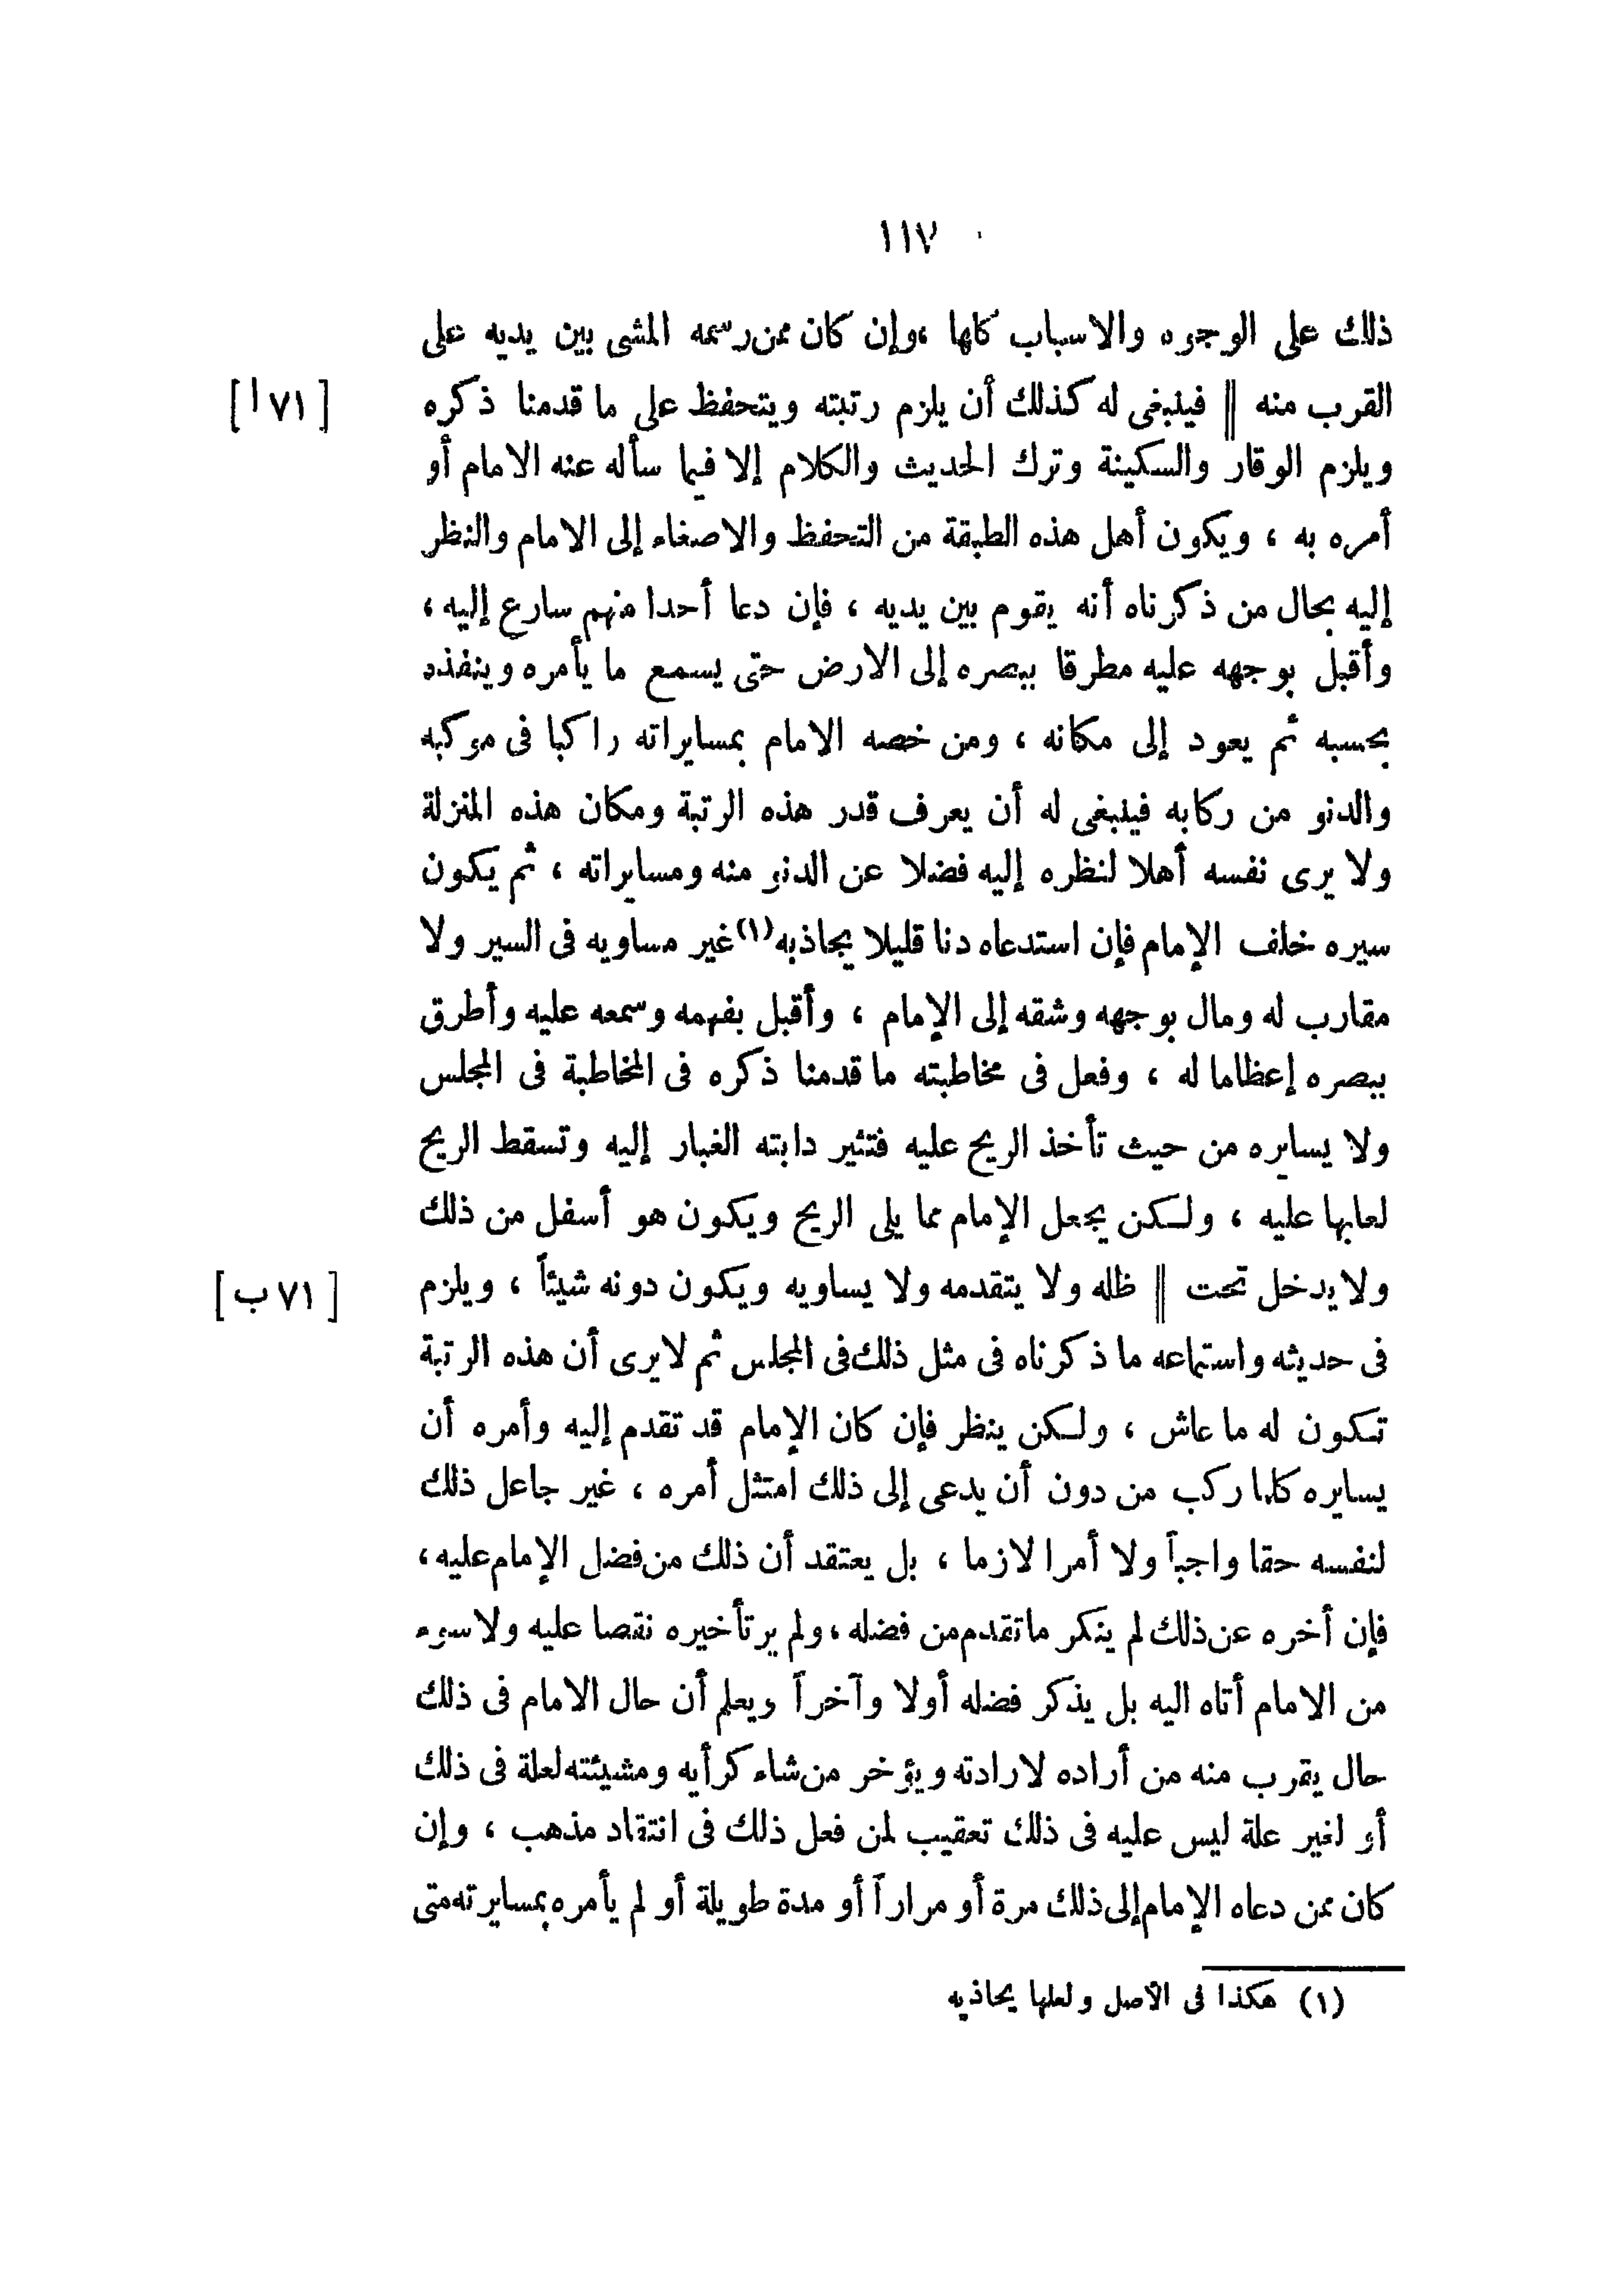 ١١٧
ذلك على الوجوه والاسباب كلها ، وإن كان ممن رسمه المشى بين يديه على
القرب منه || فينبغى له كذلك أن يلزم رتبته ويتحفظ على ما قدمنا ذكره
[ ٧١ ا ]
ويلزم الوقار والسكينة وترك الحديث والكلام إلا فيما سأله عنه الامام أو
أمره به ، ويكون أهل هذه الطبقة من التحفظ والاصغاء إلى الامام والنظر
إليه بحال من ذكرناه أنه يقوم بين يديه ، فإن دعا أحدا منهم سارع إليه ،
وأقبل بوجهه عليه مطرقا ببصره إلى الارض حتى يسمع ما يأمره وينفذه
بحسبه ثم يعود إلى مكانه ، ومن خصه الامام بمسايراته راكبا فى موكبه
والدنو من ركابه فينبغى له أن يعرف قدر هذه الرتبة ومكان هذه المنزلة
ولا يرى نفسه أهلا لنظره إليه فضلا عن الدنو منه ومسايراته ، ثم يكون
سيره خلف الإمام فإن استدعاه دنا قليلا يجاذبه(١) غير مساويه فى السير ولا
مقارب له ومال بوجهه وشقه إلى الإمام ، وأقبل بفهمه وسمعه عليه وأطرق
ببصره إعظاما له ، وفعل فى مخاطبته ما قدمنا ذكره فى المخاطبة فى المجلس
ولا يسايره من حيث تأخذ الريح عليه فتثير دابته الغبار إليه وتسقط الريح
لعابها عليه ، ولكن يجعل الإمام مما يلى الريح ويكون هو أسفل من ذلك
ولا يدخل تحت || ظله ولا يتقدمه ولا يساويه ويكون دونه شيئاً ، ويلزم
[ ٧١ ب ]
فى حديثه واستماعه ما ذكرناه فى مثل ذلك فى المجلس ثم لا يرى أن هذه الرتبة
تكون له ما عاش ، ولكن ينظر فإن كان الإمام قد تقدم إليه وأمره أن
يسايره كلما ركب من دون أن يدعى إلى ذلك امتثل أمره ، غير جاعل ذلك
لنفسه حقا واجباً ولا أمرا لازما ، بل يعتقد أن ذلك من فضل الإمام عليه ،
فإن أخره عن ذلك لم ينكر ما تقدم من فضله ، ولم ير تأخيره نقصا عليه ولا سوء
من الامام أتاه اليه بل يذكر فضله أولا وآخراً ويعلم أن حال الامام فى ذلك
حال يقرب منه من أراده لارادته ويؤخر من شاء كرأيه ومشيئته لعلة فى ذلك
أو لغير علة ليس عليه فى ذلك تعقيب لمن فعل ذلك فى انتقاد مذهب ، وإن
كان ممن دعاه الإمام إلى ذلك مرة أو مراراً أو مدة طويلة أو لم يأمره بمسايرته متى
(١) هكذا فى الأصل ولعلها يحاذيه